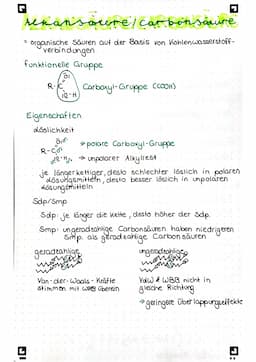 Alkansäure/Carbonsäure
organische Säuren auf der Basis von Kohlenwasserstoff-
verbindungen
funktionelle Gruppe
R-C Carboxyl-Gruppe (COOH)
O-H
Eigenschaften
Löslichkeit
→ polare Carboxyl-Gruppe
R-C
O-H → unpolarer Alkylrest
je längerkettiger, desto schlechter löslich in polaren
Lösungsmitteln, desto besser löslich in unpolaren
Lösungsmitteln
Sdp/Smp
Sdp: je länger die Kette, desto höher der Sdp.
Smp: ungeradzahlige Carbonsäuren haben niedrigeren
Smp. als geradzahlige Carbonsäuren
geradzahlige ungeradzahlige
Van-der-Waals-Kräfte VdW & WBB nicht in
stimmen mit WBB überein gleiche Richtung
→ geringere Überlappungseffekte